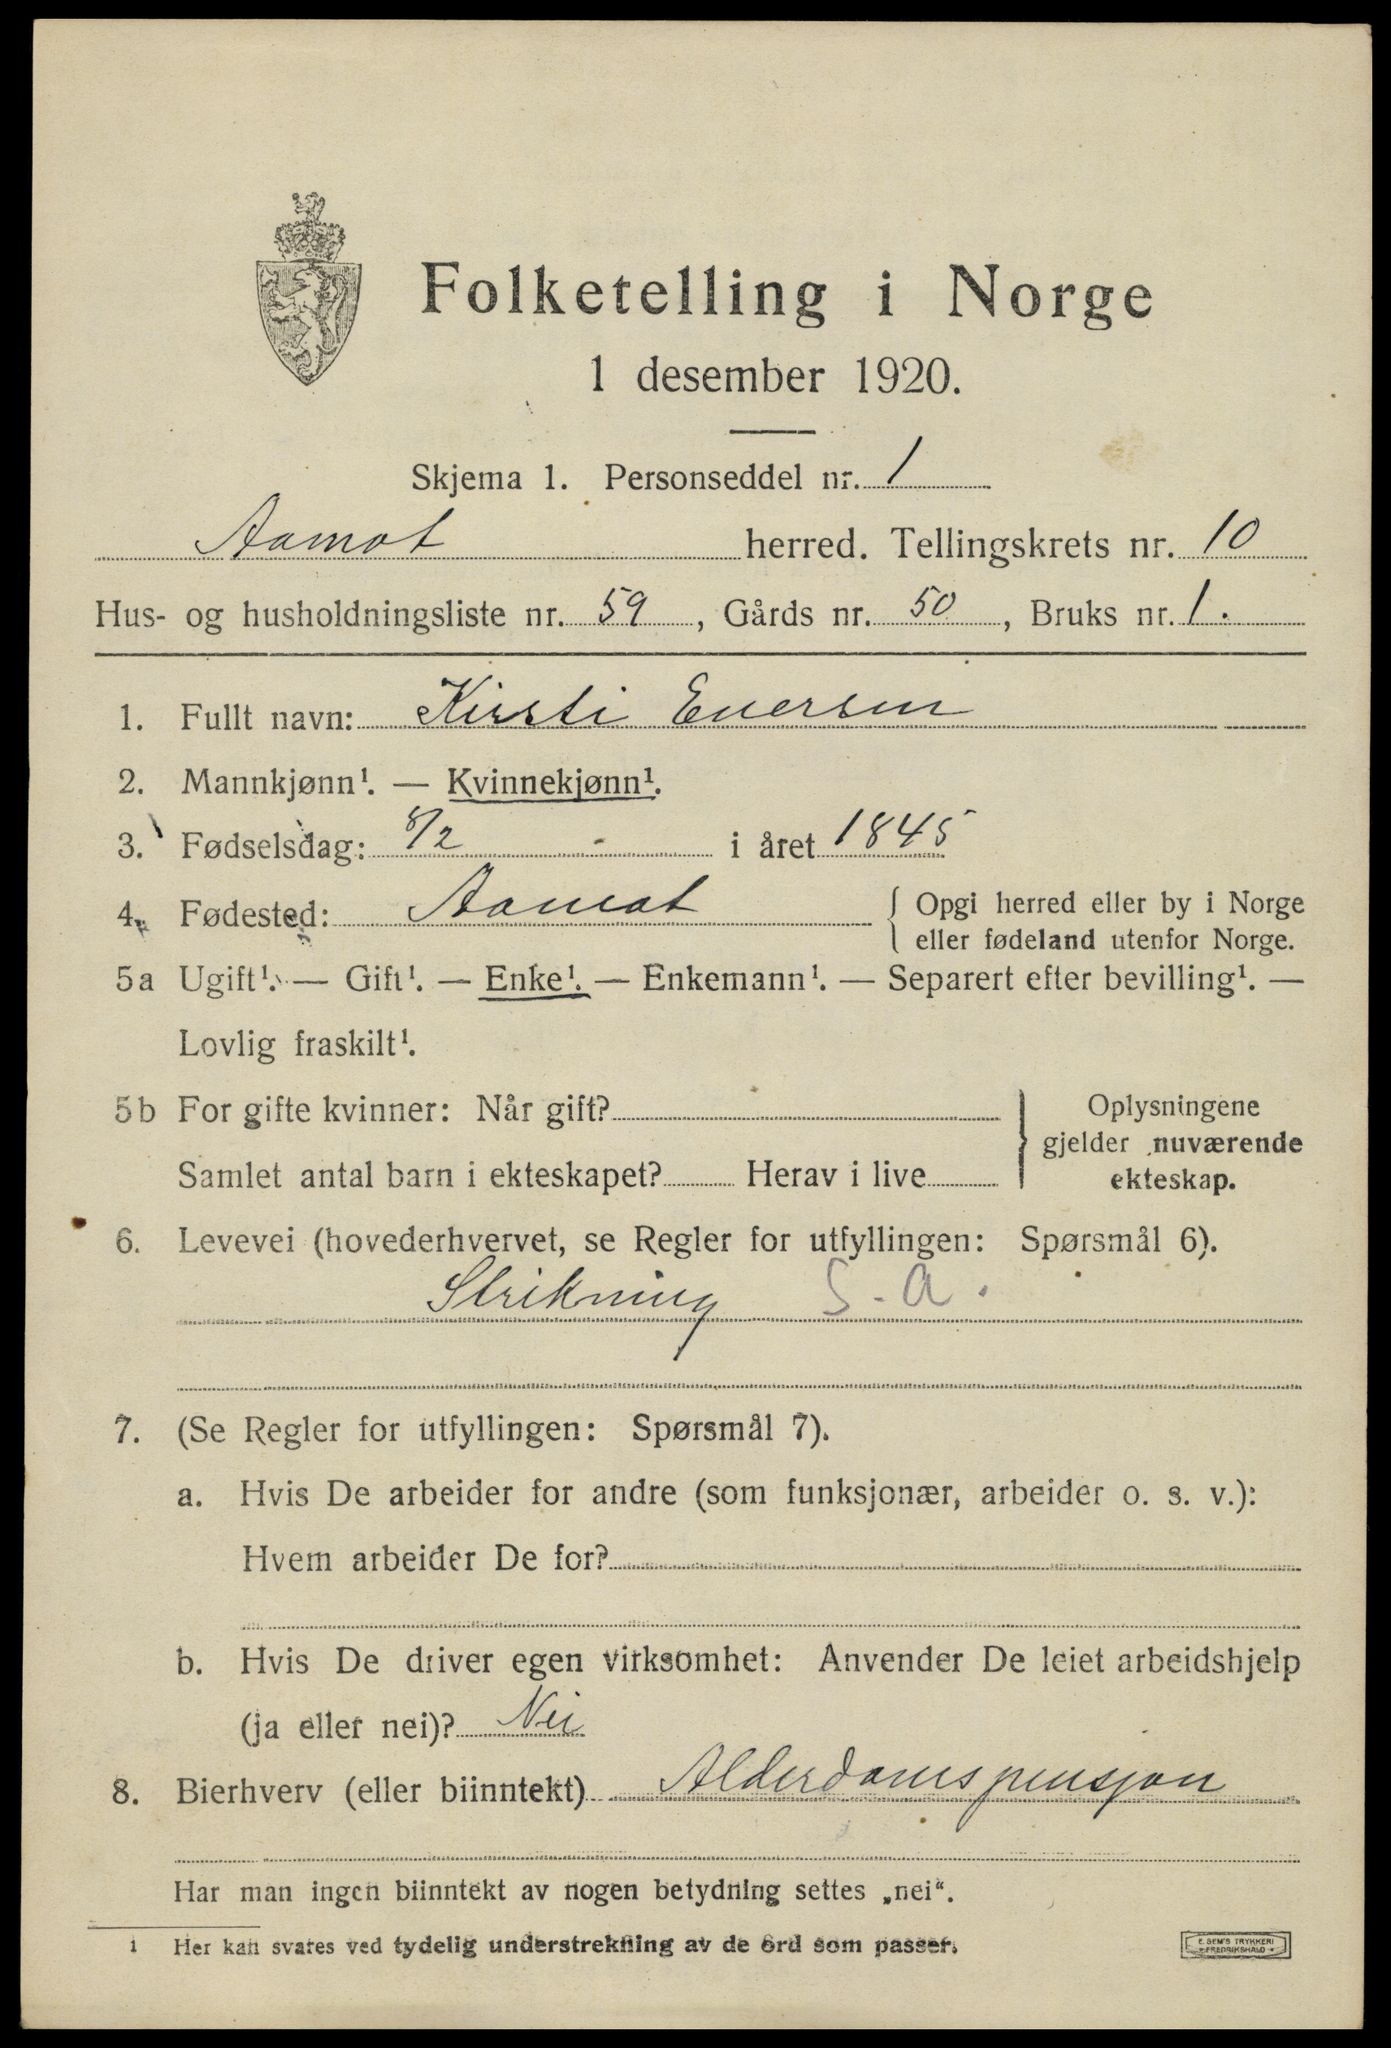 Folketelling i Norge
1 desember 1920.
Skjema 1. Personseddel nr. 1
Aamot herred. Tellingskrets nr. 10
Hus- og husholdningsliste nr. 59, Gårds nr. 50, Bruks nr. 1.
1. Fullt navn: Kirsti Eversen
2. Mannkjønn¹. — Kvinnekjønn¹.
3. Fødselsdag: 8/2 i året 1845
4. Fødested: Aamot { Opgi herred eller by i Norge
eller fødeland utenfor Norge.
5a Ugift¹. — Gift¹. — Enke¹. — Enkemann¹. — Separert efter bevilling¹. —
Lovlig fraskilt¹.
5b For gifte kvinner: Når gift?
Samlet antal barn i ekteskapet? Herav i live
} Oplysningene
gjelder nuværende
ekteskap.
6. Levevei (hovederhvervet, se Regler for utfyllingen: Spørsmål 6).
Strikning S.a.
7. (Se Regler for utfyllingen: Spørsmål 7).
a. Hvis De arbeider for andre (som funksjonær, arbeider o. s. v.):
Hvem arbeider De for?
b. Hvis De driver egen virksomhet: Anvender De leiet arbeidshjelp
(ja eller nei)? Nei
8. Bierhverv (eller biinntekt) Alderdomspensjon
Har man ingen biinntekt av nogen betydning settes „nei“.
1 Her kan svares ved tydelig understrekning av de ord som passer.
E. SEM'S TRYKKERI
FREDRIKSHALD